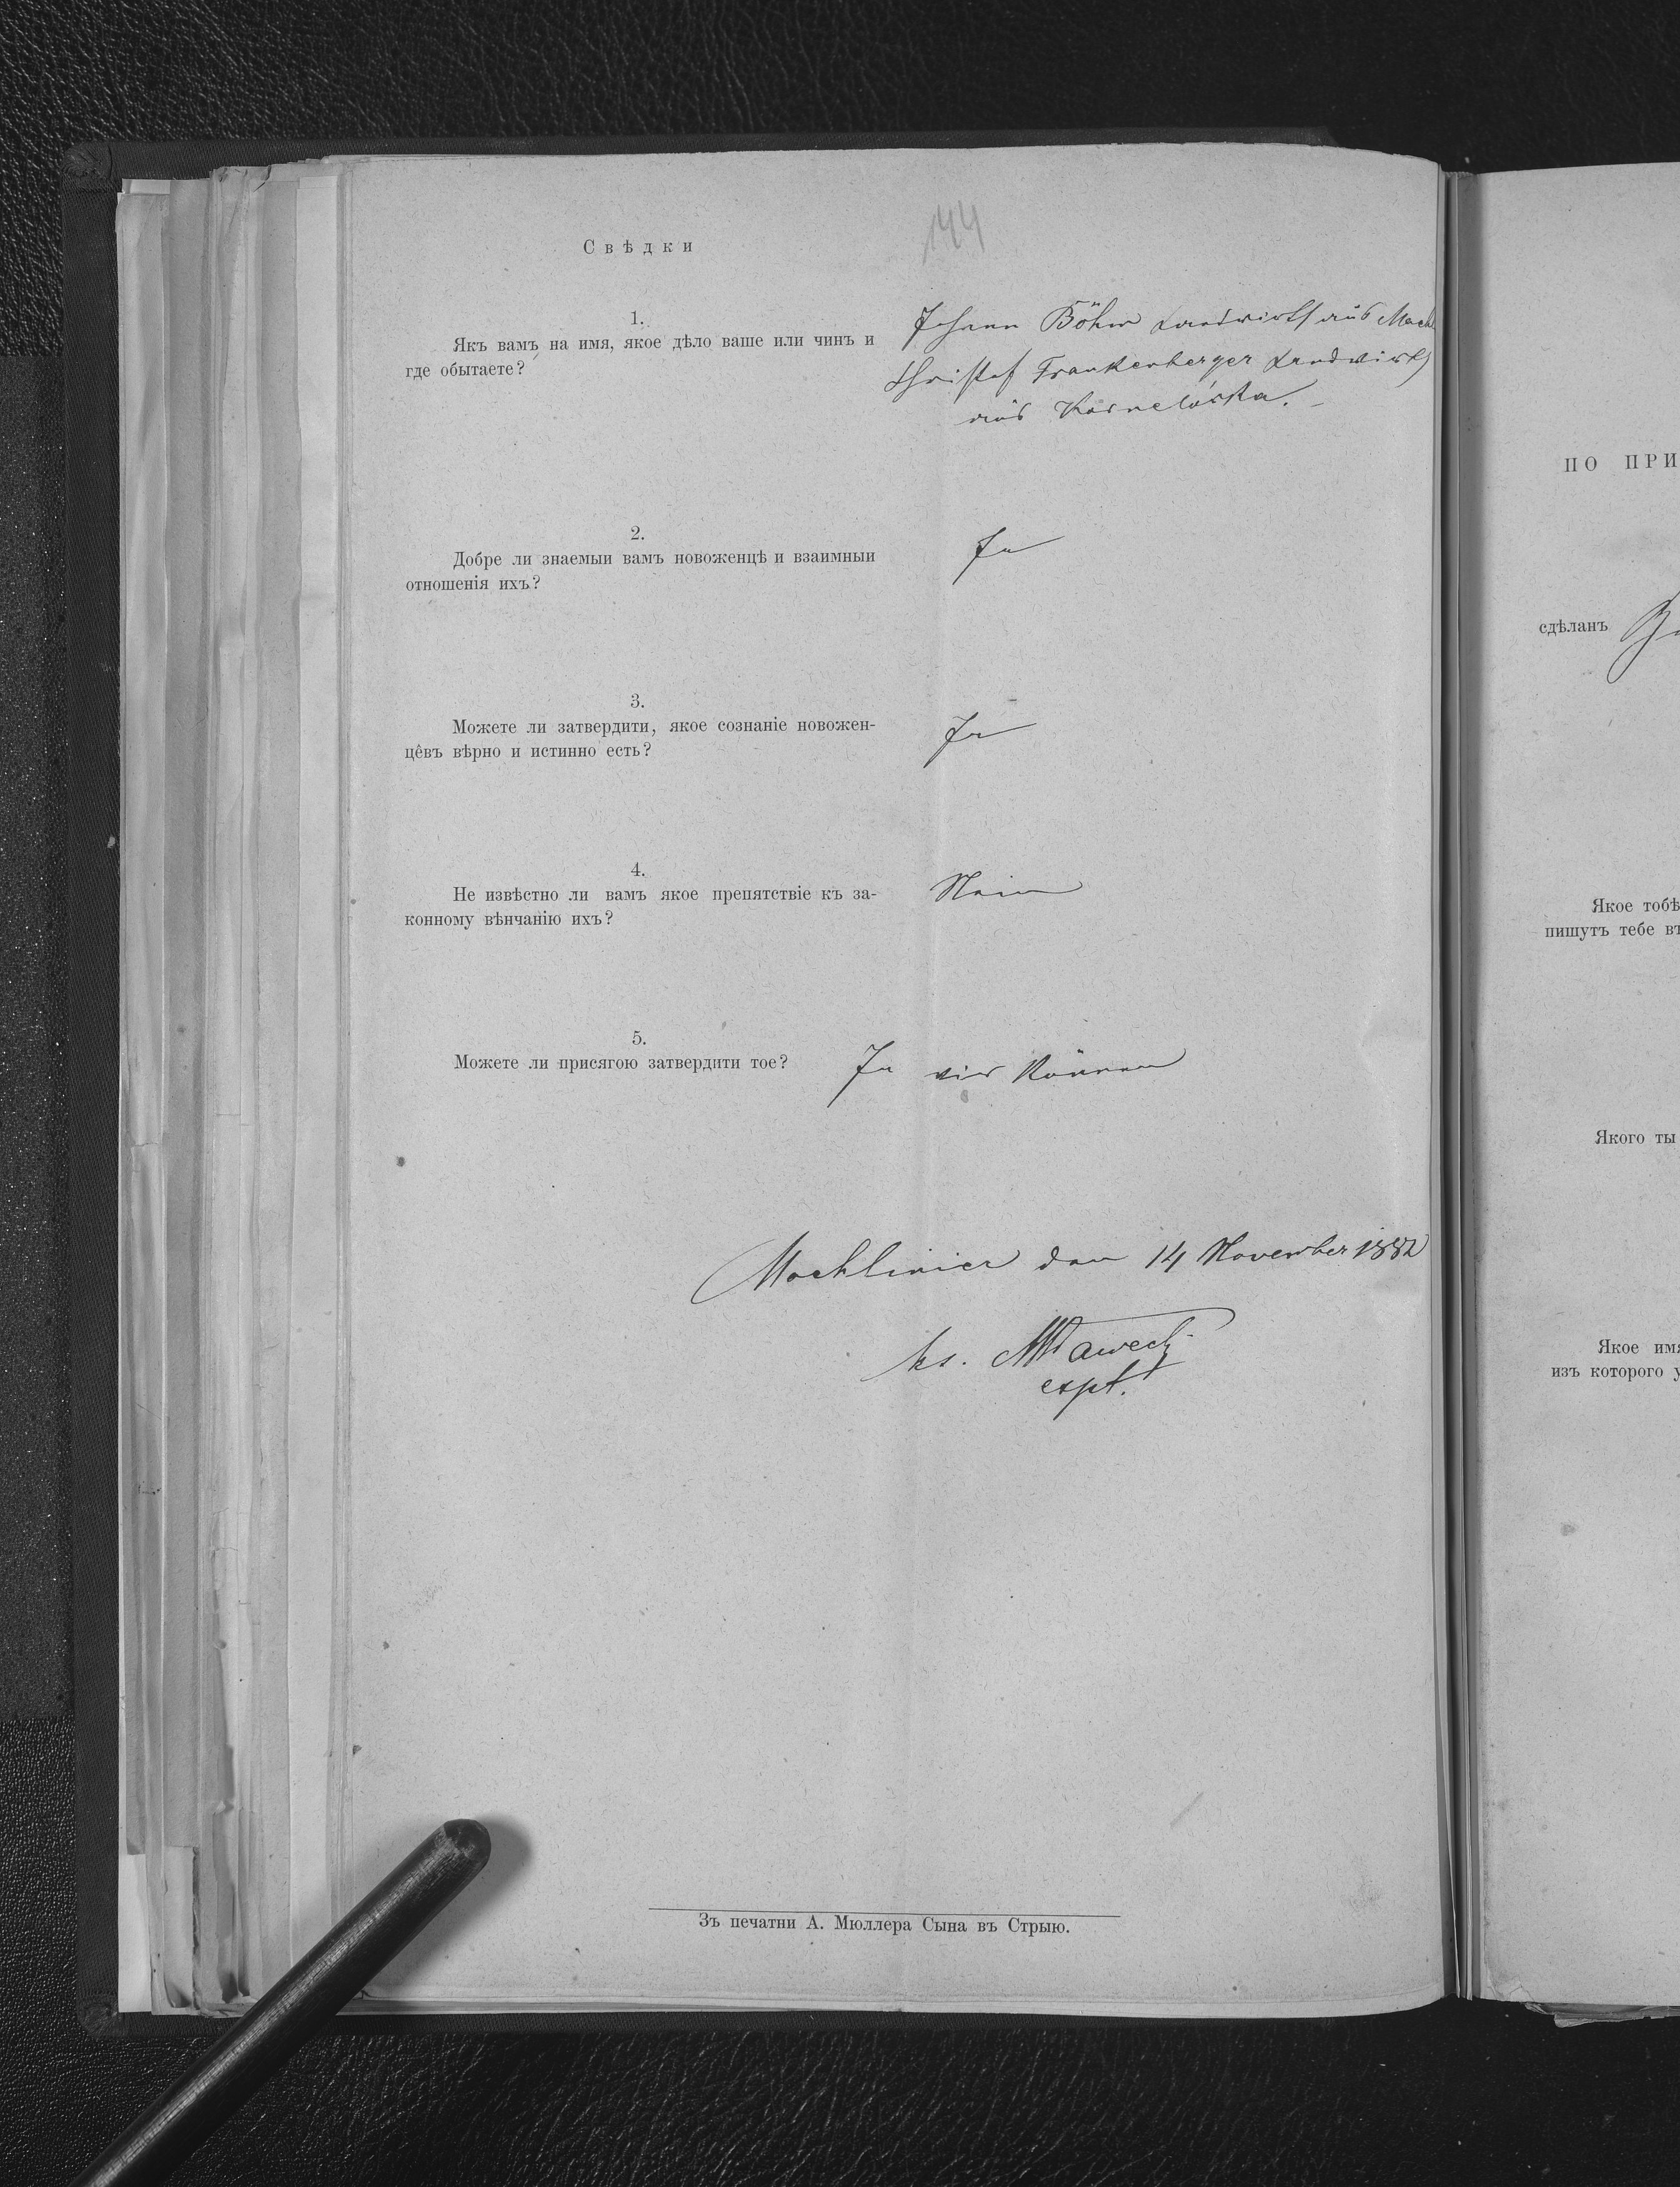 144
Свѣдки
1.
Якъ вамъ на имя, якое дѣло ваше или чинъ и
где обытаете?
Johann Böhm Landwirth aus Mach
Christof Frankenberger Landwirth
aus Kornelówka.
2.
Добре ли знаемыи вамъ новоженцѣ и взаимныи
отношенія ихъ?
Ja
3.
Можете ли затвердити, якое сознаніе новожен-
цêвъ вѣрно и истинно есть?
Ja
4.
Не извѣстно ли вамъ якое препятствіе къ за-
конному вѣнчанію ихъ?
Nein
5.
Можете ли присягою затвердити тое?
Ja wir können
Machliniec den 14 November 1882
ks.
expt.
Зъ печатни А. Мюллера Сына въ Стрыю.
ПО ПРИ
сдѣланъ
Якое тобѣ
пишутъ тебе въ
Якого ты
Якое имя
изъ которого у